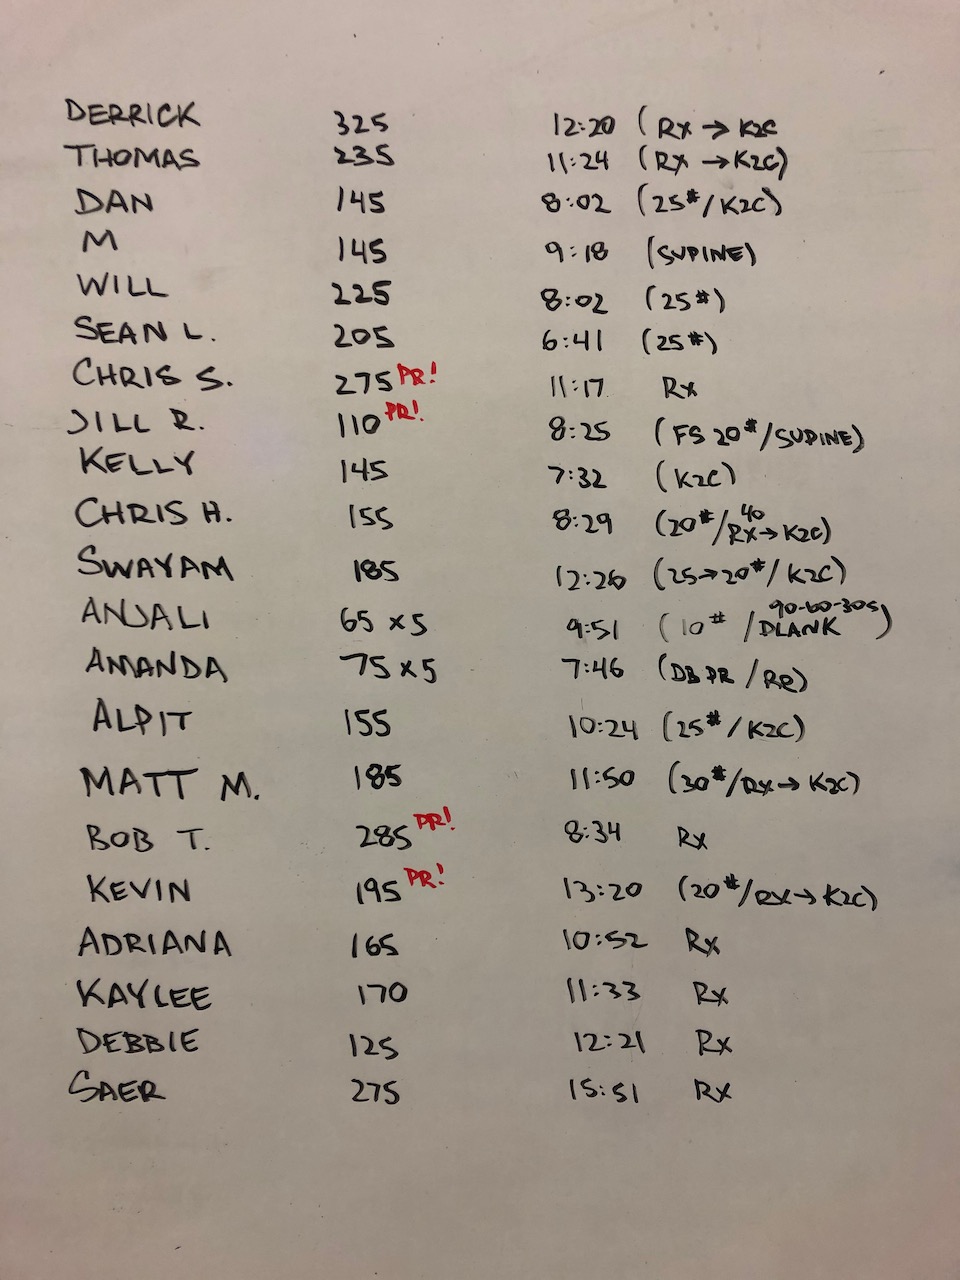 DERRICK 325 12:20 (Rx → K2C
THOMAS 235 11:24 (Rx → K2C)
DAN 145 8:02 (25#/K2C)
M 145 9:18 (SUPINE)
WILL 225 8:02 (25#)
SEAN L. 205 6:41 (25#)
CHRIS S. 275 PR! 11:17 Rx
JILL R. 110 PR! 8:25 (FS 20#/SUPINE)
KELLY 145 7:32 (K2C)
CHRIS H. 155 8:29 (20#/Rx 40 → K2C)
SWAYAM 185 12:26 (25→20#/K2C)
ANJALI 65 x5 9:51 (10# /PLANK 90-60-30s)
AMANDA 75 x5 7:46 (DB PR /RR)
ALPIT 155 10:24 (25#/K2C)
MATT M. 185 11:50 (30#/Rx → K2C)
BOB T. 285 PR! 8:34 Rx
KEVIN 195 PR! 13:20 (20#/Rx → K2C)
ADRIANA 165 10:52 Rx
KAYLEE 170 11:33 Rx
DEBBIE 125 12:21 Rx
SAER 275 15:51 Rx